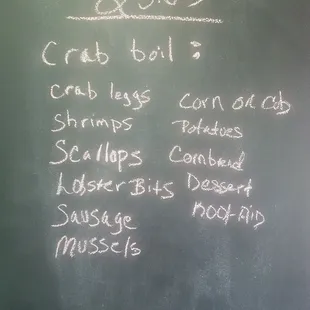 Crab boil :
Crab leggs
Shrimps
Scallops
Lobster Bits
Sausage
Mussels
Corn on Cob
Potatoes
Cornbread
Dessert
Kool-Aid